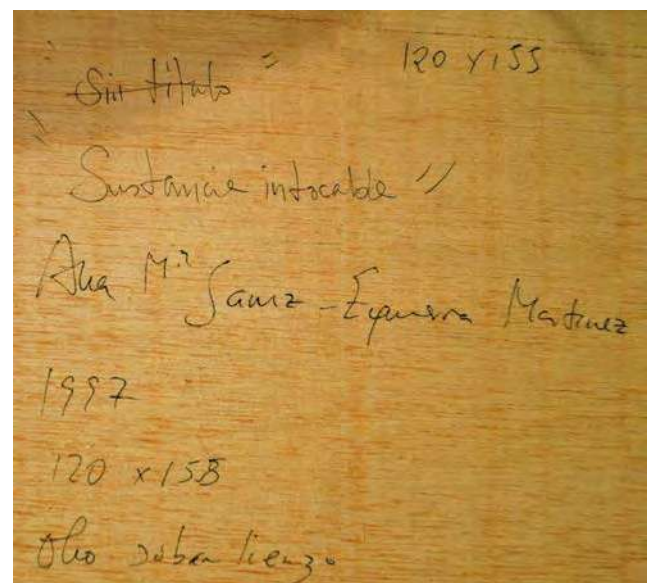 "Sin título" 120 x 155
"Sustancia intocable"
Ana Mª Sanz-Ezquerra Martinez
1997
120 x 155
Oleo sobre lienzo